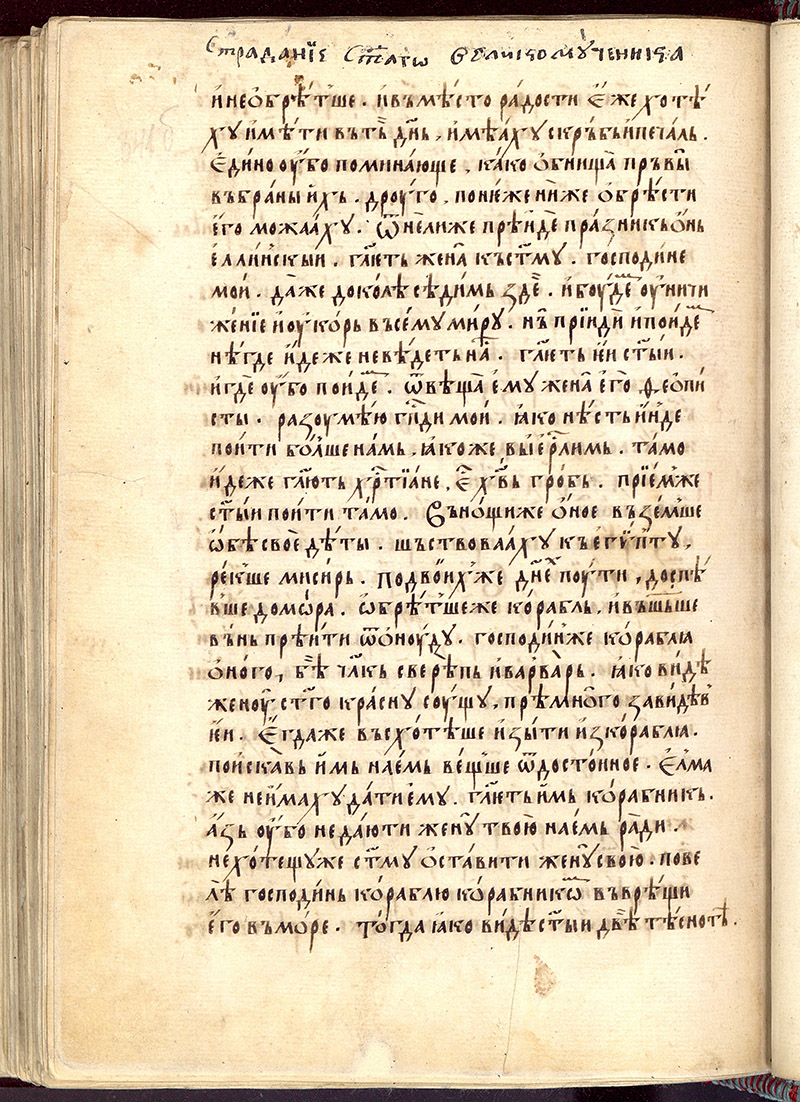 Страданїе Ст҃аго Великомученика
и҆ не ѡ҆брѣ́тше . и҆ въмѣ́сто ра́дости є҆́же хотѣ́
ху и҆мѣ́ти въ тъ̀ дн҃ь , и҆мѣа́ху скръ́бь и҆ печа́ль .
є҆ди́но оу҆́бо помина́юще , ка́ко ѡ҆бнища̀ пръвы̏
въ бра́ны и҆́хь . дроуго , поне́же ни́же ѡ҆брѣ́сти
є҆го можаа́ху . ѿнели́же прѣи́де пра́зникь ѻ҆́нь
є҆́ллинскыи . гл҃еть жена̀ къ ст҃му . господи́не
мои . да́же доко́лѣ сѣди́мь здѐ . и҆ боу́де оу҆ничи
же́нїе и҆ оу҆ко́рь въсемꙋ ми́рꙋ . нѫ прїиди̏ и҆ поиде
нѣ́где и҆де́же не вѣ́деть на̑ . гл҃еть и҆̏и ст҃ыи .
и҆ гдѐ оу҆́бо поиде . ѿвѣща̀ є҆мꙋ жена̀ є҆го̀ ѳеопи
сты . разоумѣ́ю гд҃и мо́и . ꙗ҆ко нѣ́сть и҆́нде
поити бо́лше на́мь , ꙗ҆ко́же въ і҆ер҃лимь . та́мо
и҆де́же гл҃ють хр҃тїа́не , є҆̑ хв҃ь гро́бь . прїе́мже
ст҃ыи поити та́мо . Въ но́щи же ѻ҆́ное възе́мше
ѻ҆́бѣ своѐ дѣ́ты . шъствоваа́ху къ є҆гѵ́птꙋ ,
ре́кше мисирь . По двои́х же дн҃ех поути , доспѣ́
вше до мѡ́ра . ѡ҆брѣ́тше же ко́рабль , и҆ въшьше
въ́нь прѣи́ти ѿ ѻ҆ноу́дꙋ . господи́нже кора́блꙗ
ѻ҆́ного , бѣ̀ чл҃кь сверѣ́пь и҆ ва́рва̀рь . ꙗ҆ко ви́дѣ
женоу̀ ст҃го кра́снꙋ соу́щꙋ , прѣмно́го зави́дѣв
и҆̏и . Є҆гда́же въсхотѣ́ше и҆зы́ти и҆з кораблꙗ .
поиска́вь и҆́мь нае́мь ве́щше ѿ досто́инное . Є҆лма
же не и҆ма́хꙋ да́ти є҆мꙋ . гл҃еть и҆́мь ко́рабник .
а҆́зь оу҆́бо не да́ю ти женꙋ̀ твою̀ нае́мь ра́ди .
не хо́тещꙋ же ст҃мꙋ ѡ҆ста́вити женꙋ̀ свою̀ . пове
лѣ̀ господи́нь кора́блю ко́рабникѡм въврѣ́щи
є҆́го въ мо́ре . То́гда ꙗ҆ко ви́дѣ ст҃ыи двѣ̀ тѣ́снотѣ .